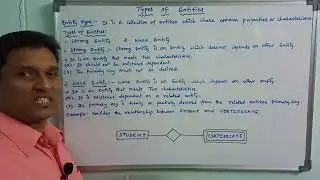 Types of Entities
Entity Type:- It is a collection of entities which share common properties or characteristics
Types of Entities:
1. Strong Entity 2. Weak Entity.
1. Strong Entity:- Strong Entity is an Entity which doesnot depends on other Entity
It is an Entity that meets two characteristics.
(i) It should not be existence dependent
(ii) The primary key must not be derived.
2. Weak Entity:- Weak Entity is an Entity which depends on other entity.
It is an Entity that meets Two characteristics.
(i) It is existence dependent on a related entity.
(ii) Its primary key is totally or partially derived from the related entities primary key
Example:- Consider the relationship between STUDENT and CERTIFICATE.
STUDENT
CERTIFICATE